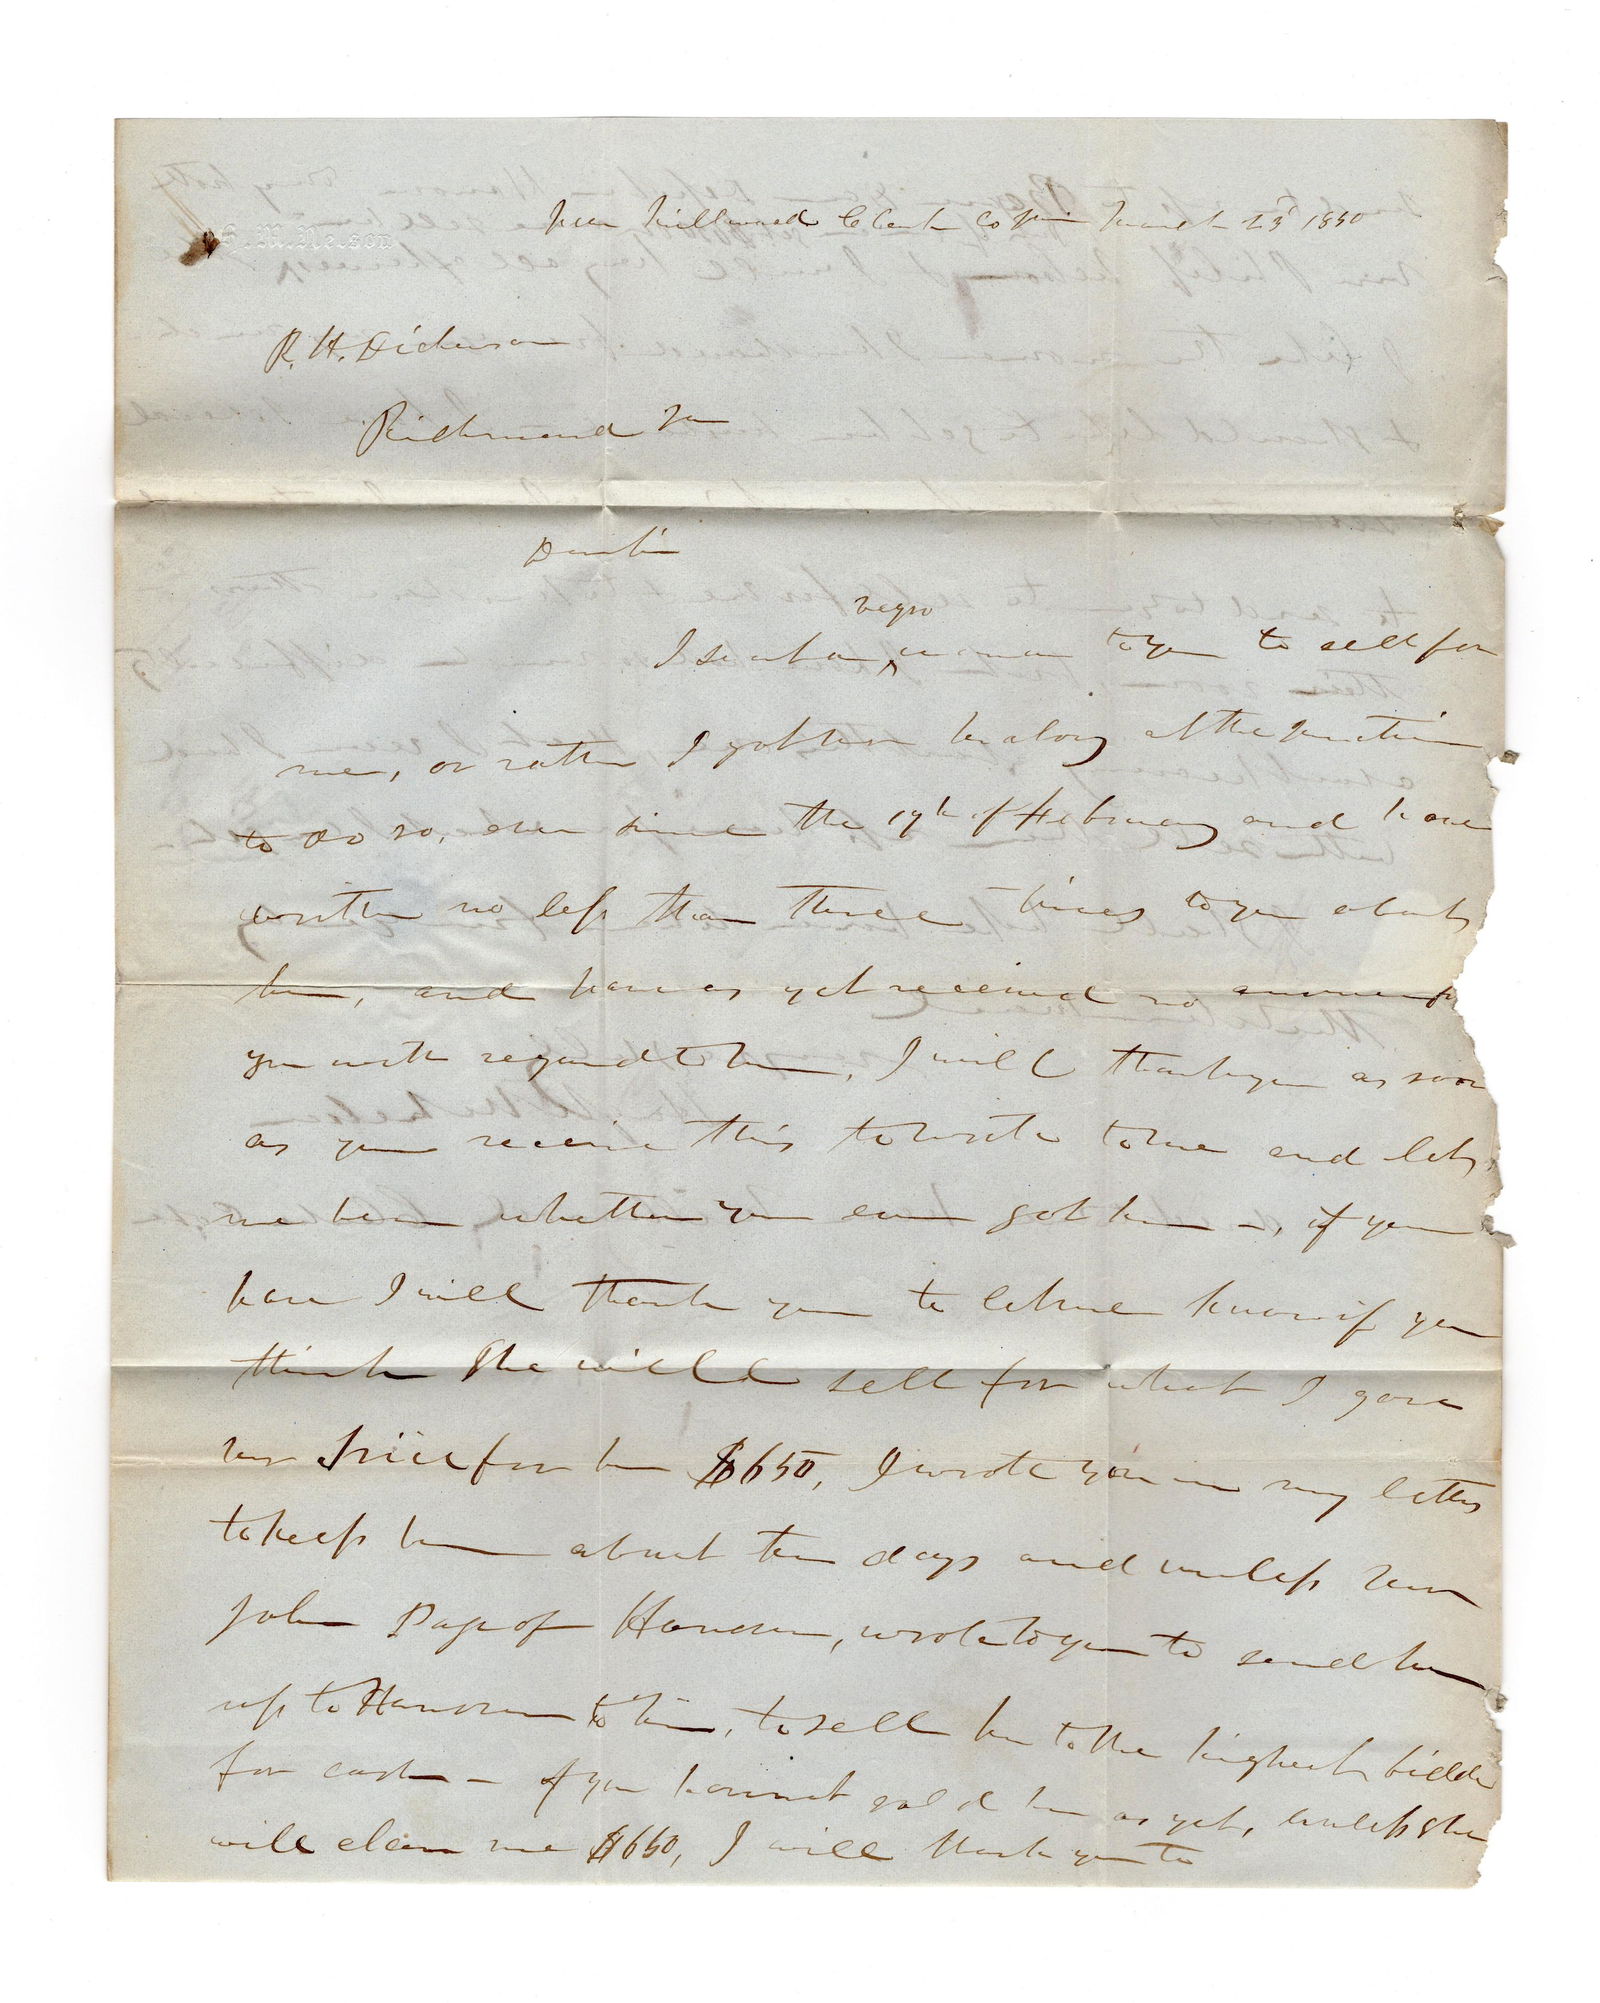 Near Millwood Clark Co Va March 23rd 1850
H. M. Nelson
R. H. Dickerson
Richmond Va
Dear Sir
negro
I sent a woman to you to sell for
me, or rather I got her to along at the Junction
to do so, ever since the 19th of February and have
written no less than three times to you about
her, and have as yet received no answer fr
you with regard to her, I will thank you as soon
as you receive this to write to me and let
me hear whether you ever got her —, if you
have I will thank you to let me know if you
think she will sell for what I gave
my price for her $650, I wrote you in my letters
to keep her about ten days and unless Mr
John Page of Hanover, wrote to you to send her
up to Hanover to him, to sell her to the highest bidder
for cash — if you have not sold her as yet, unless she
will clear me $650, I will thank you to